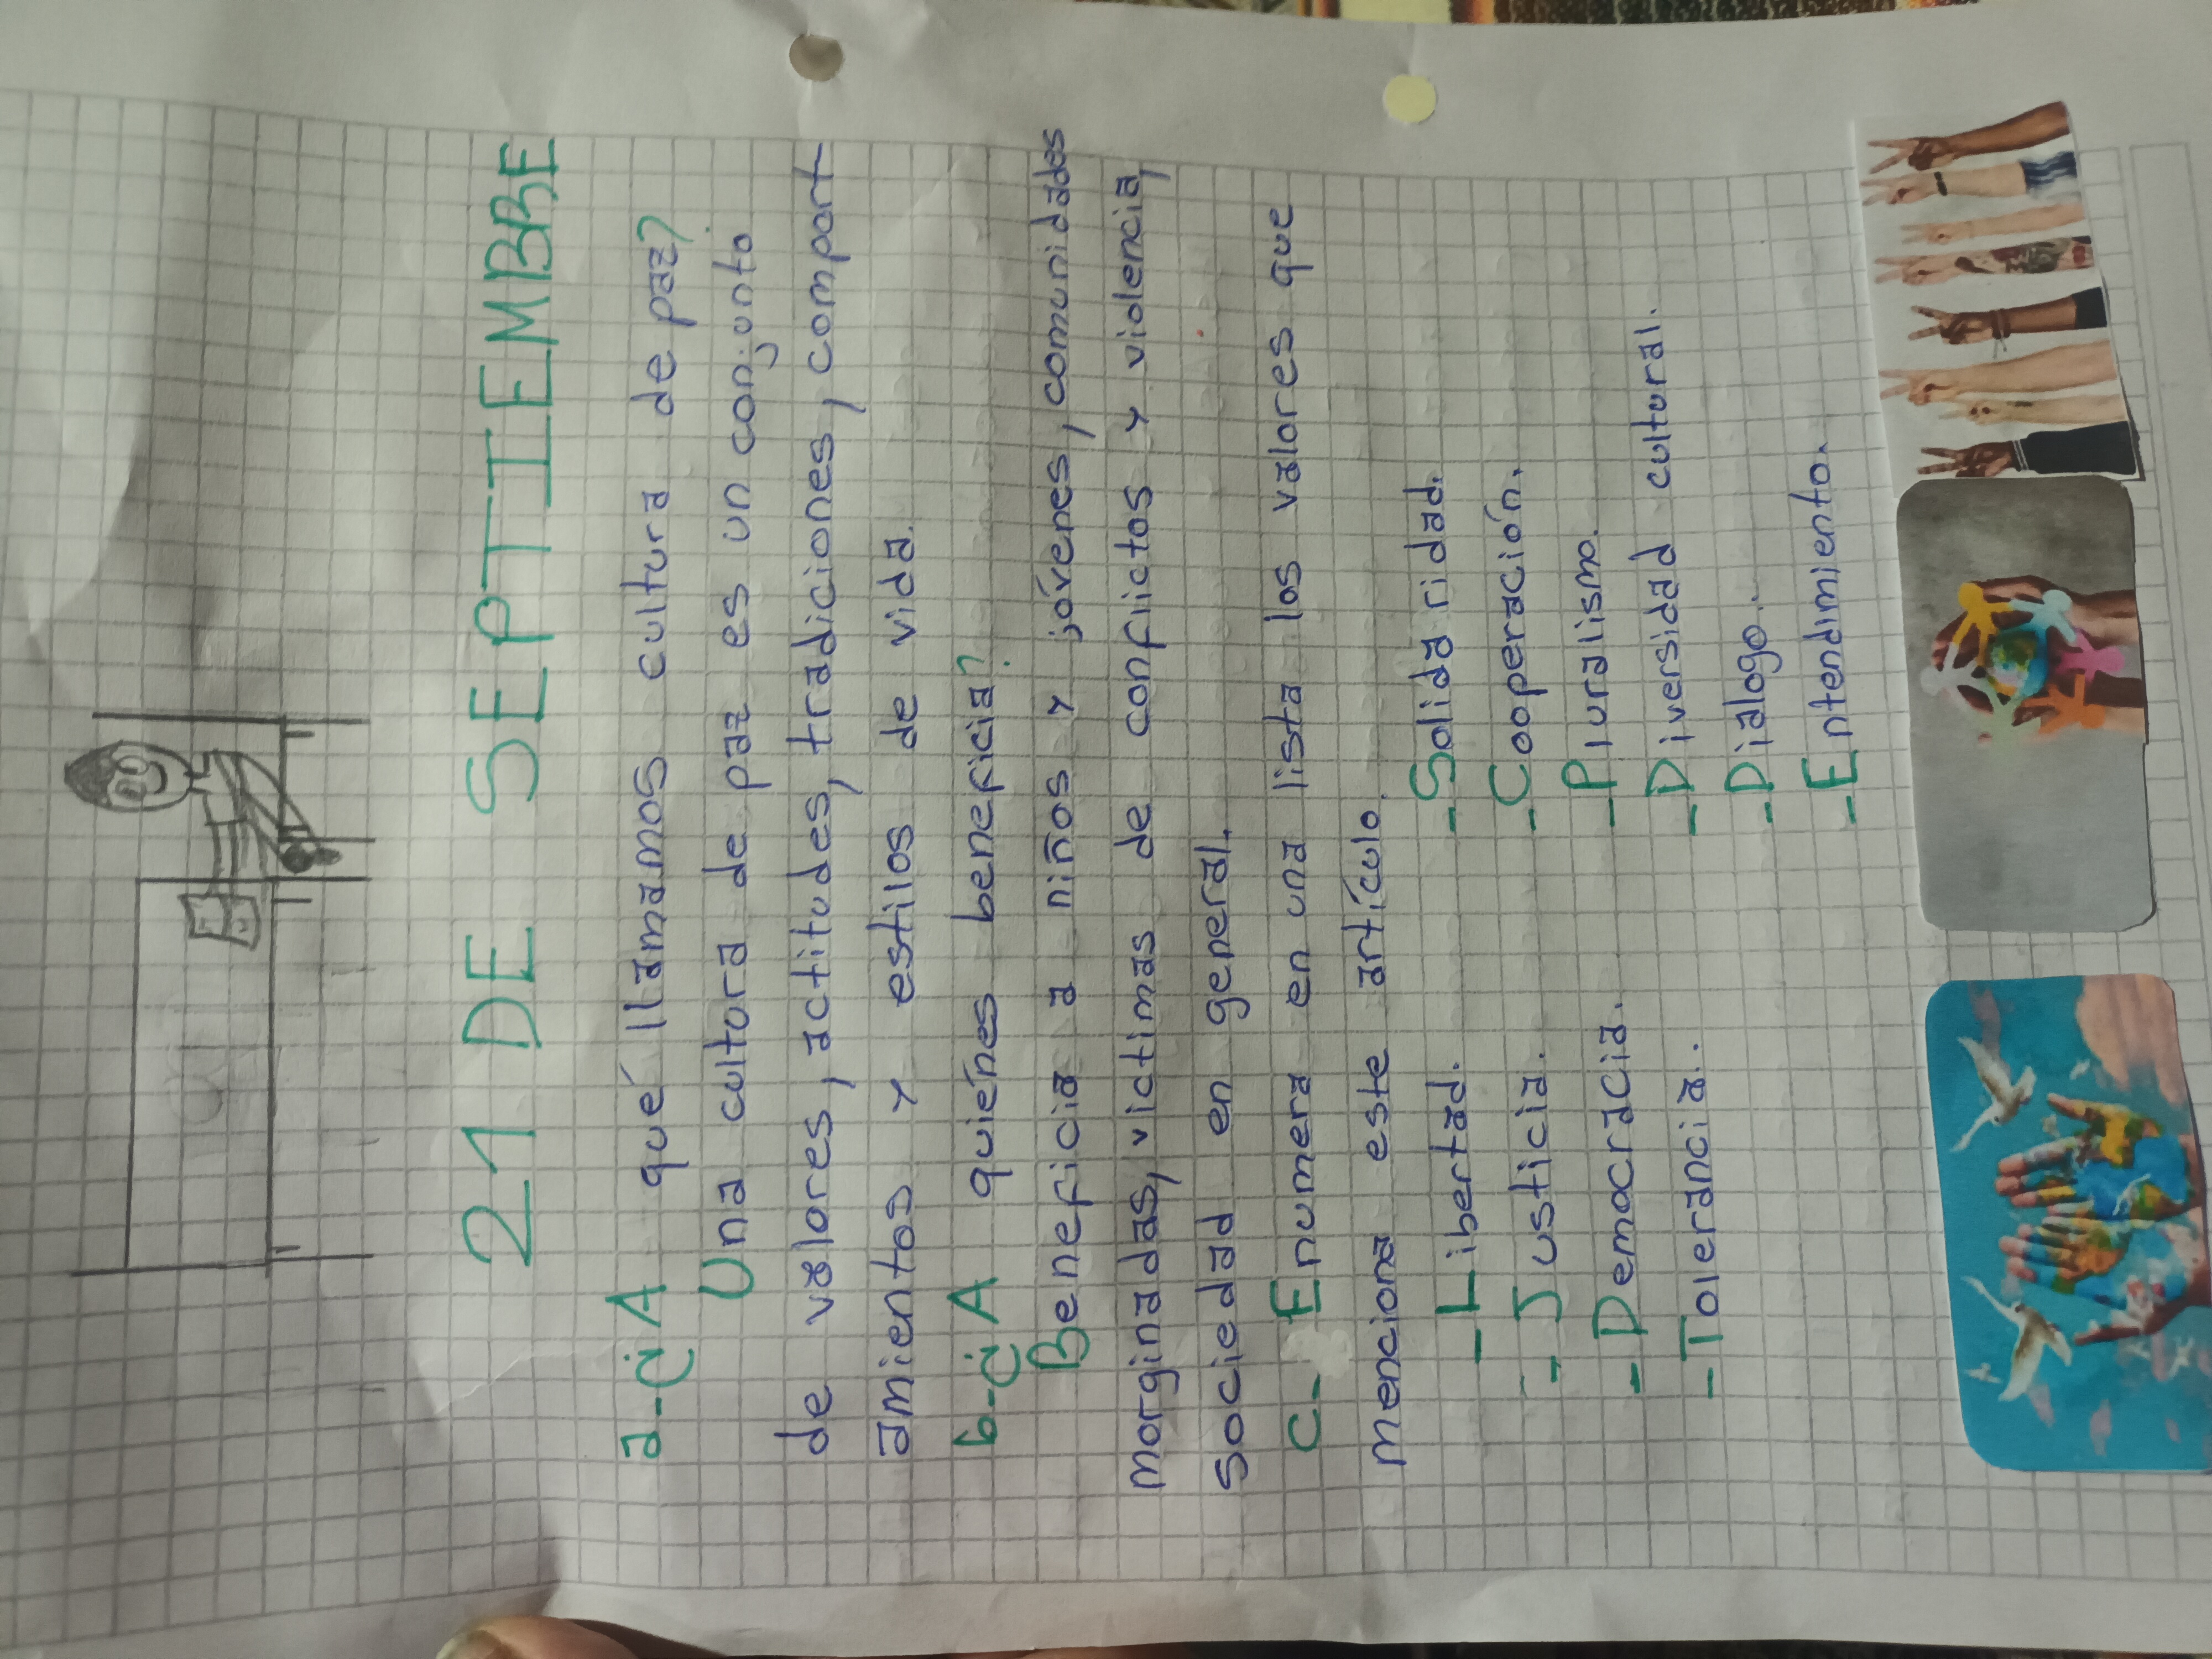 21 DE SEPTIEMBRE
a-¿A qué llamamos cultura de paz?
Una cultura de paz es un conjunto
de valores, actitudes, tradiciones, comport
amientos y estilos de vida.
b-¿A quiénes beneficia?
Beneficia a niños y jóvenes, comunidades
marginadas, victimas de conflictos y violencia,
sociedad en general.
c- Enumera en una lista los valores que
menciona este artículo.
-Libertad.
-Justicia.
-Democracia.
-Tolerancia.
-Solidaridad.
-Cooperación.
-Pluralismo.
-Diversidad cultural.
-Dialogo.
-Entendimiento.